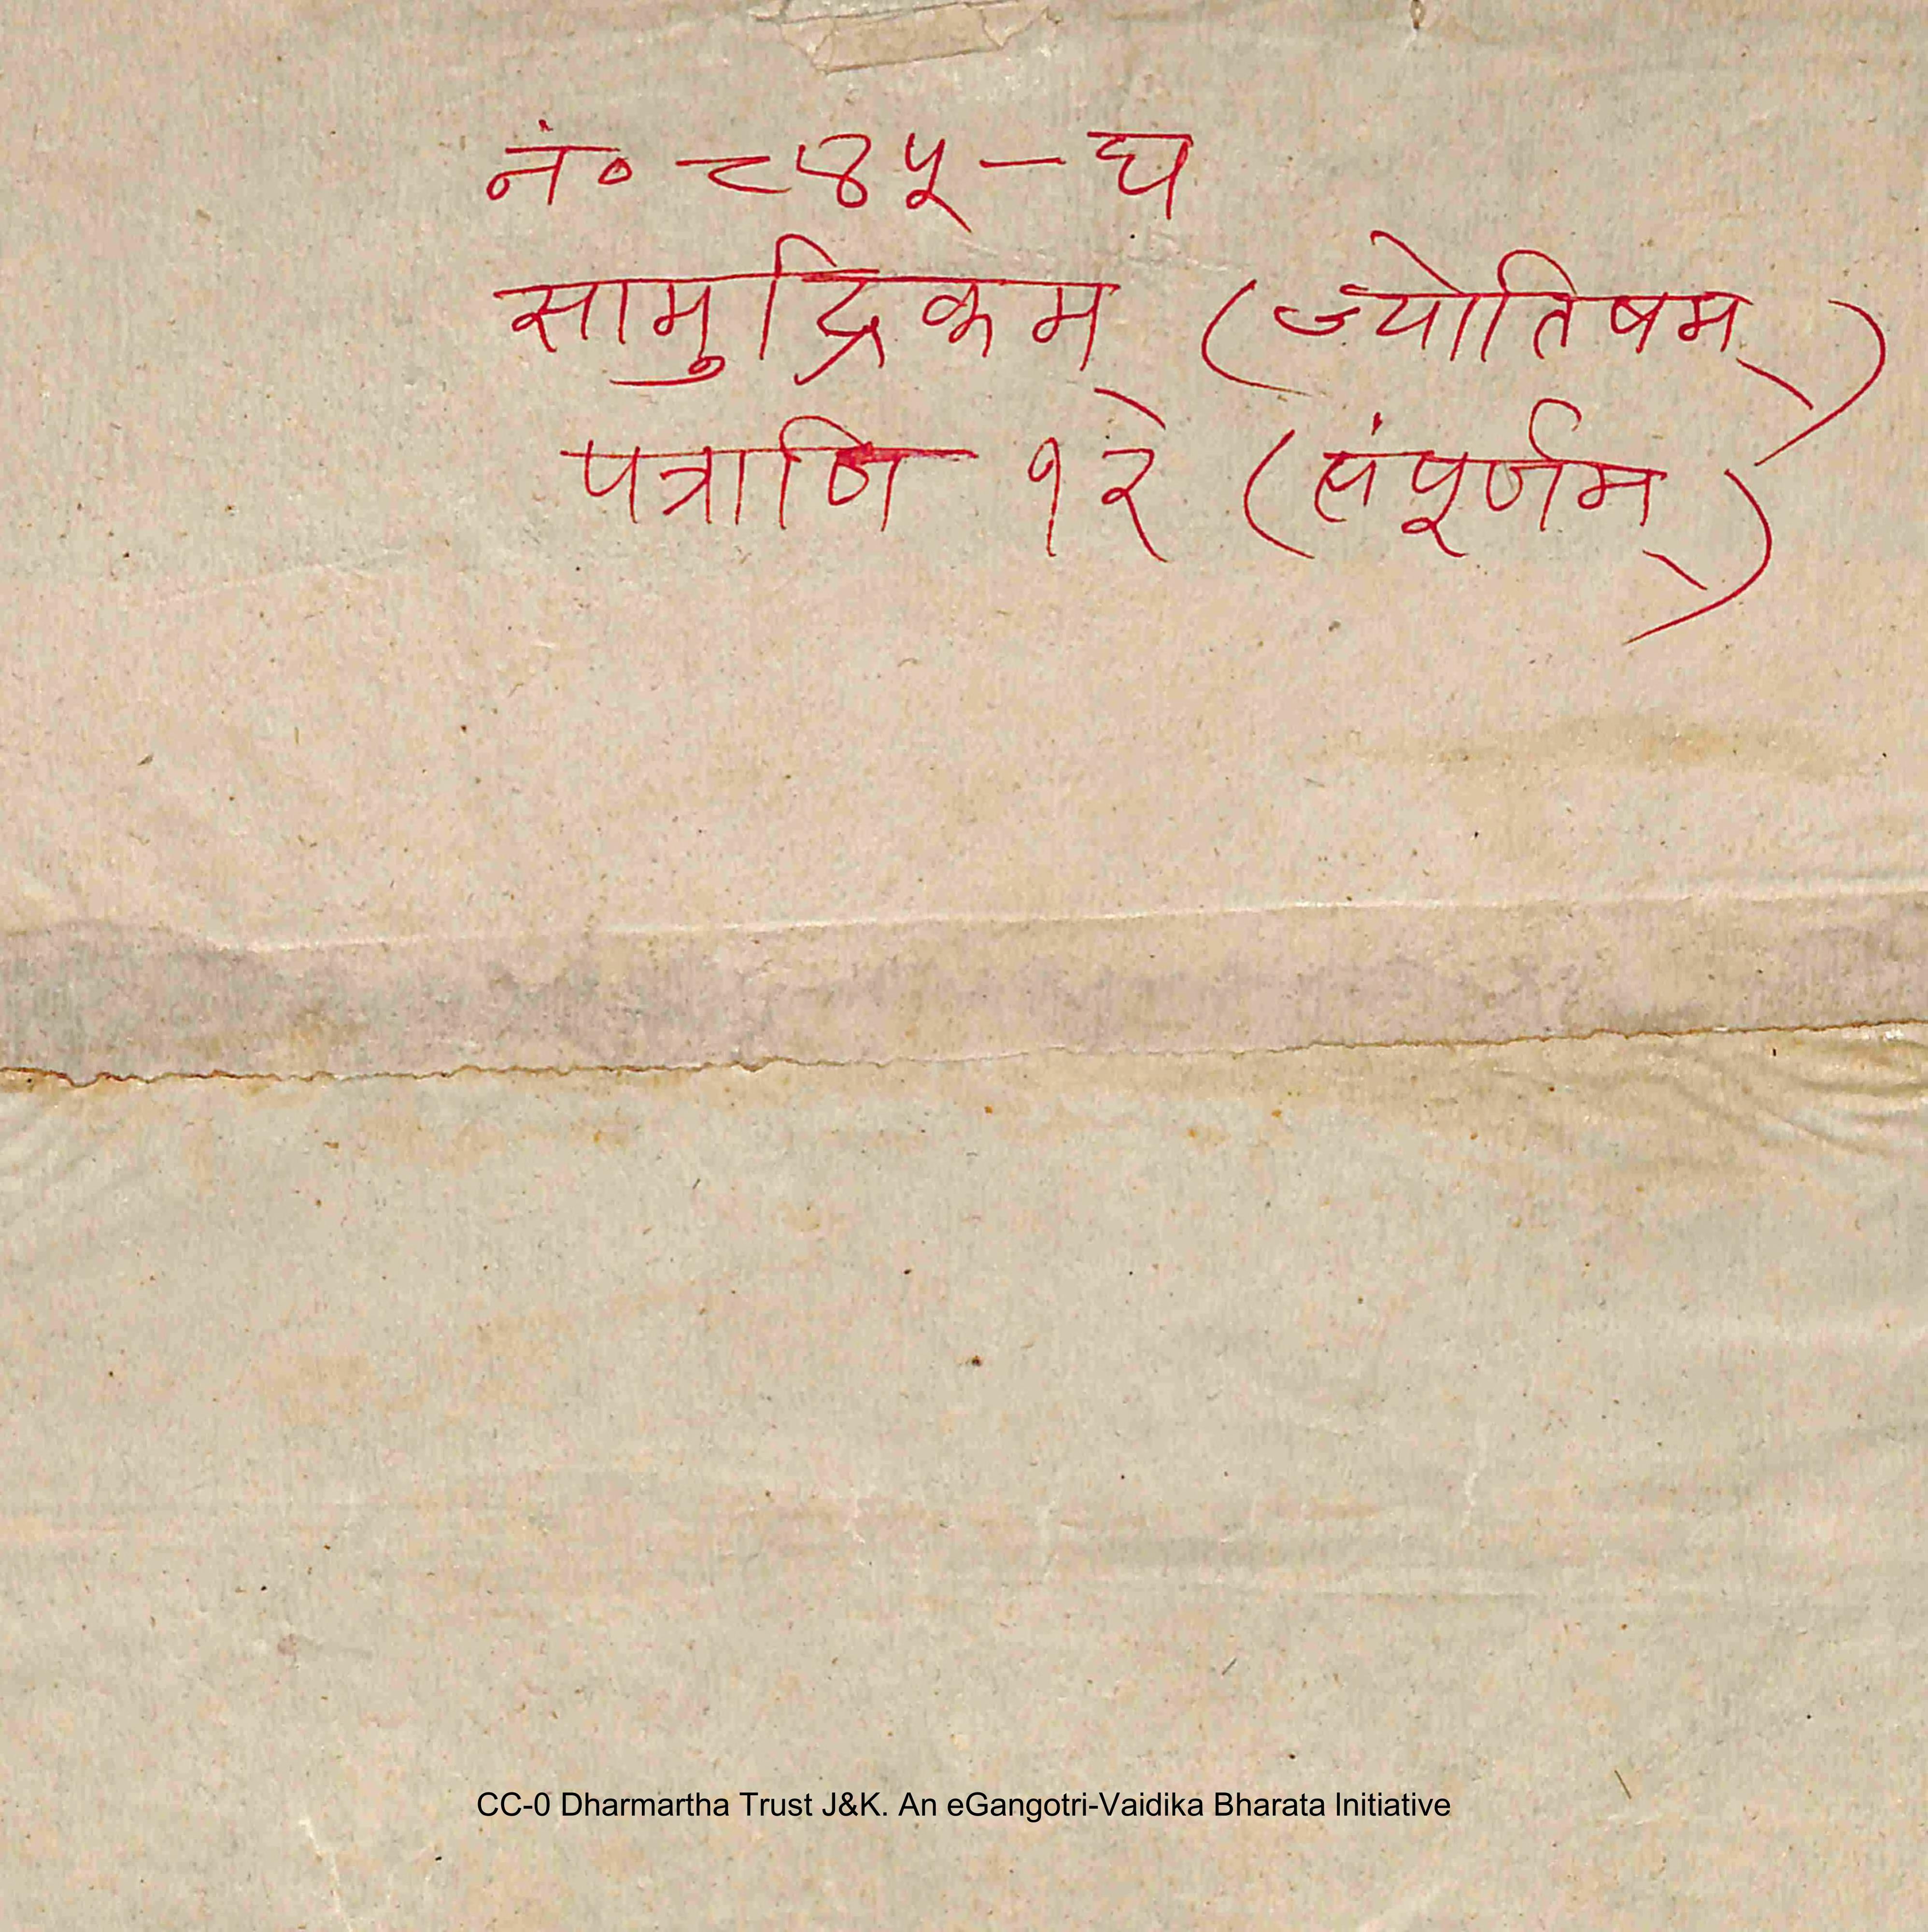 नं० ८४५ – घ
सामुद्रिकम् (ज्योतिषम्)
पत्राणि १२ (संपूर्णम्)
CC-0 Dharmartha Trust J&K. An eGangotri-Vaidika Bharata Initiative